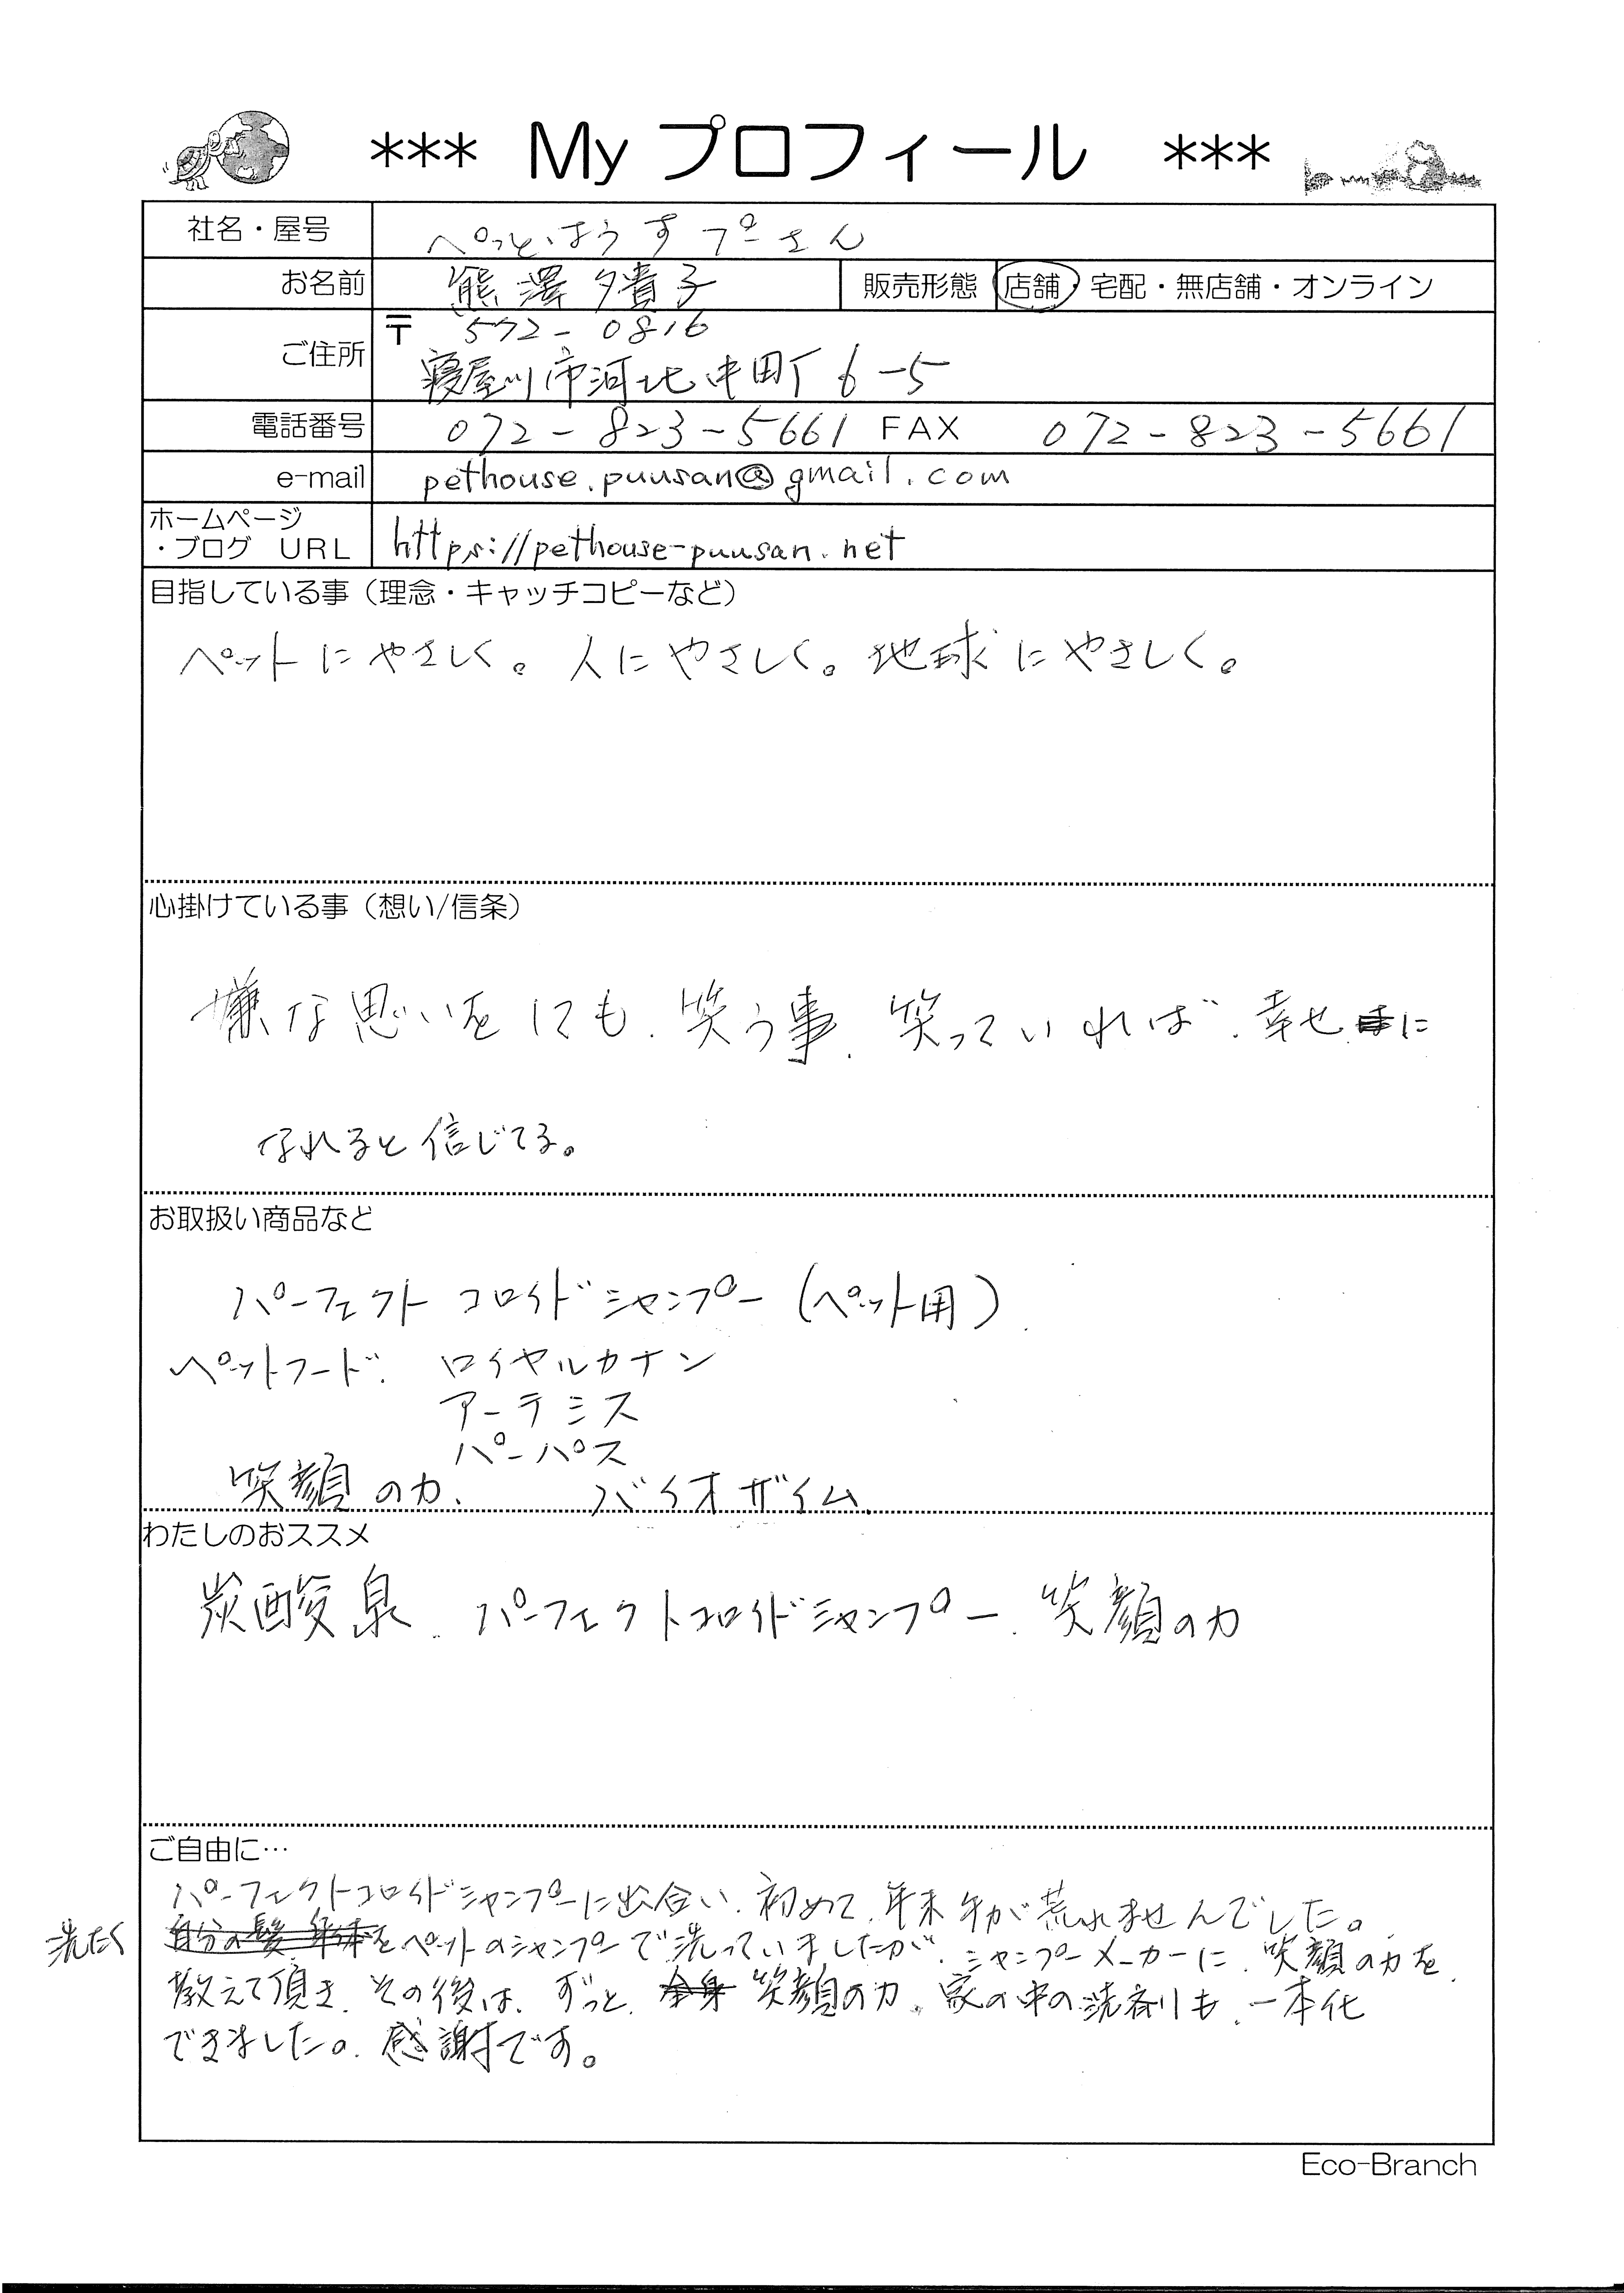 *** My プロフィール ***
社名・屋号 ぺっとはうすプーさん
お名前 熊澤夕貴子 販売形態 店舗・宅配・無店舗・オンライン
ご住所 〒 572-0816
寝屋川市河北中町6-5
電話番号 072-823-5661 FAX 072-823-5661
e-mail pethouse.puusan@gmail.com
ホームページ
・ブログ URL https://pethouse-puusan.net
目指している事(理念・キャッチコピーなど)
ペットにやさしく。人にやさしく。地球にやさしく。
心掛けている事(想い/信条)
嫌な思いをしても、笑う事、笑っていれば、幸せに
なれると信じてる。
お取扱い商品など
パーフェクトコロイドシャンプー(ペット用)
ペットフード、ロイヤルカナン
アーテミス
パーパス
笑顔の力、 バイオザイム
わたしのおススメ
炭酸泉、パーフェクトコロイドシャンプー、笑顔の力
ご自由に…
パーフェクトコロイドシャンプーに出合い、初めて、年末手が荒れませんでした。
洗たく 自分の髪、身体をペットのシャンプーで洗っていましたが、シャンプーメーカーに、笑顔の力を
教えて頂き、その後は、ずっと、全身 笑顔の力、家の中の洗剤も、一本化
できました。感謝です。
Eco-Branch